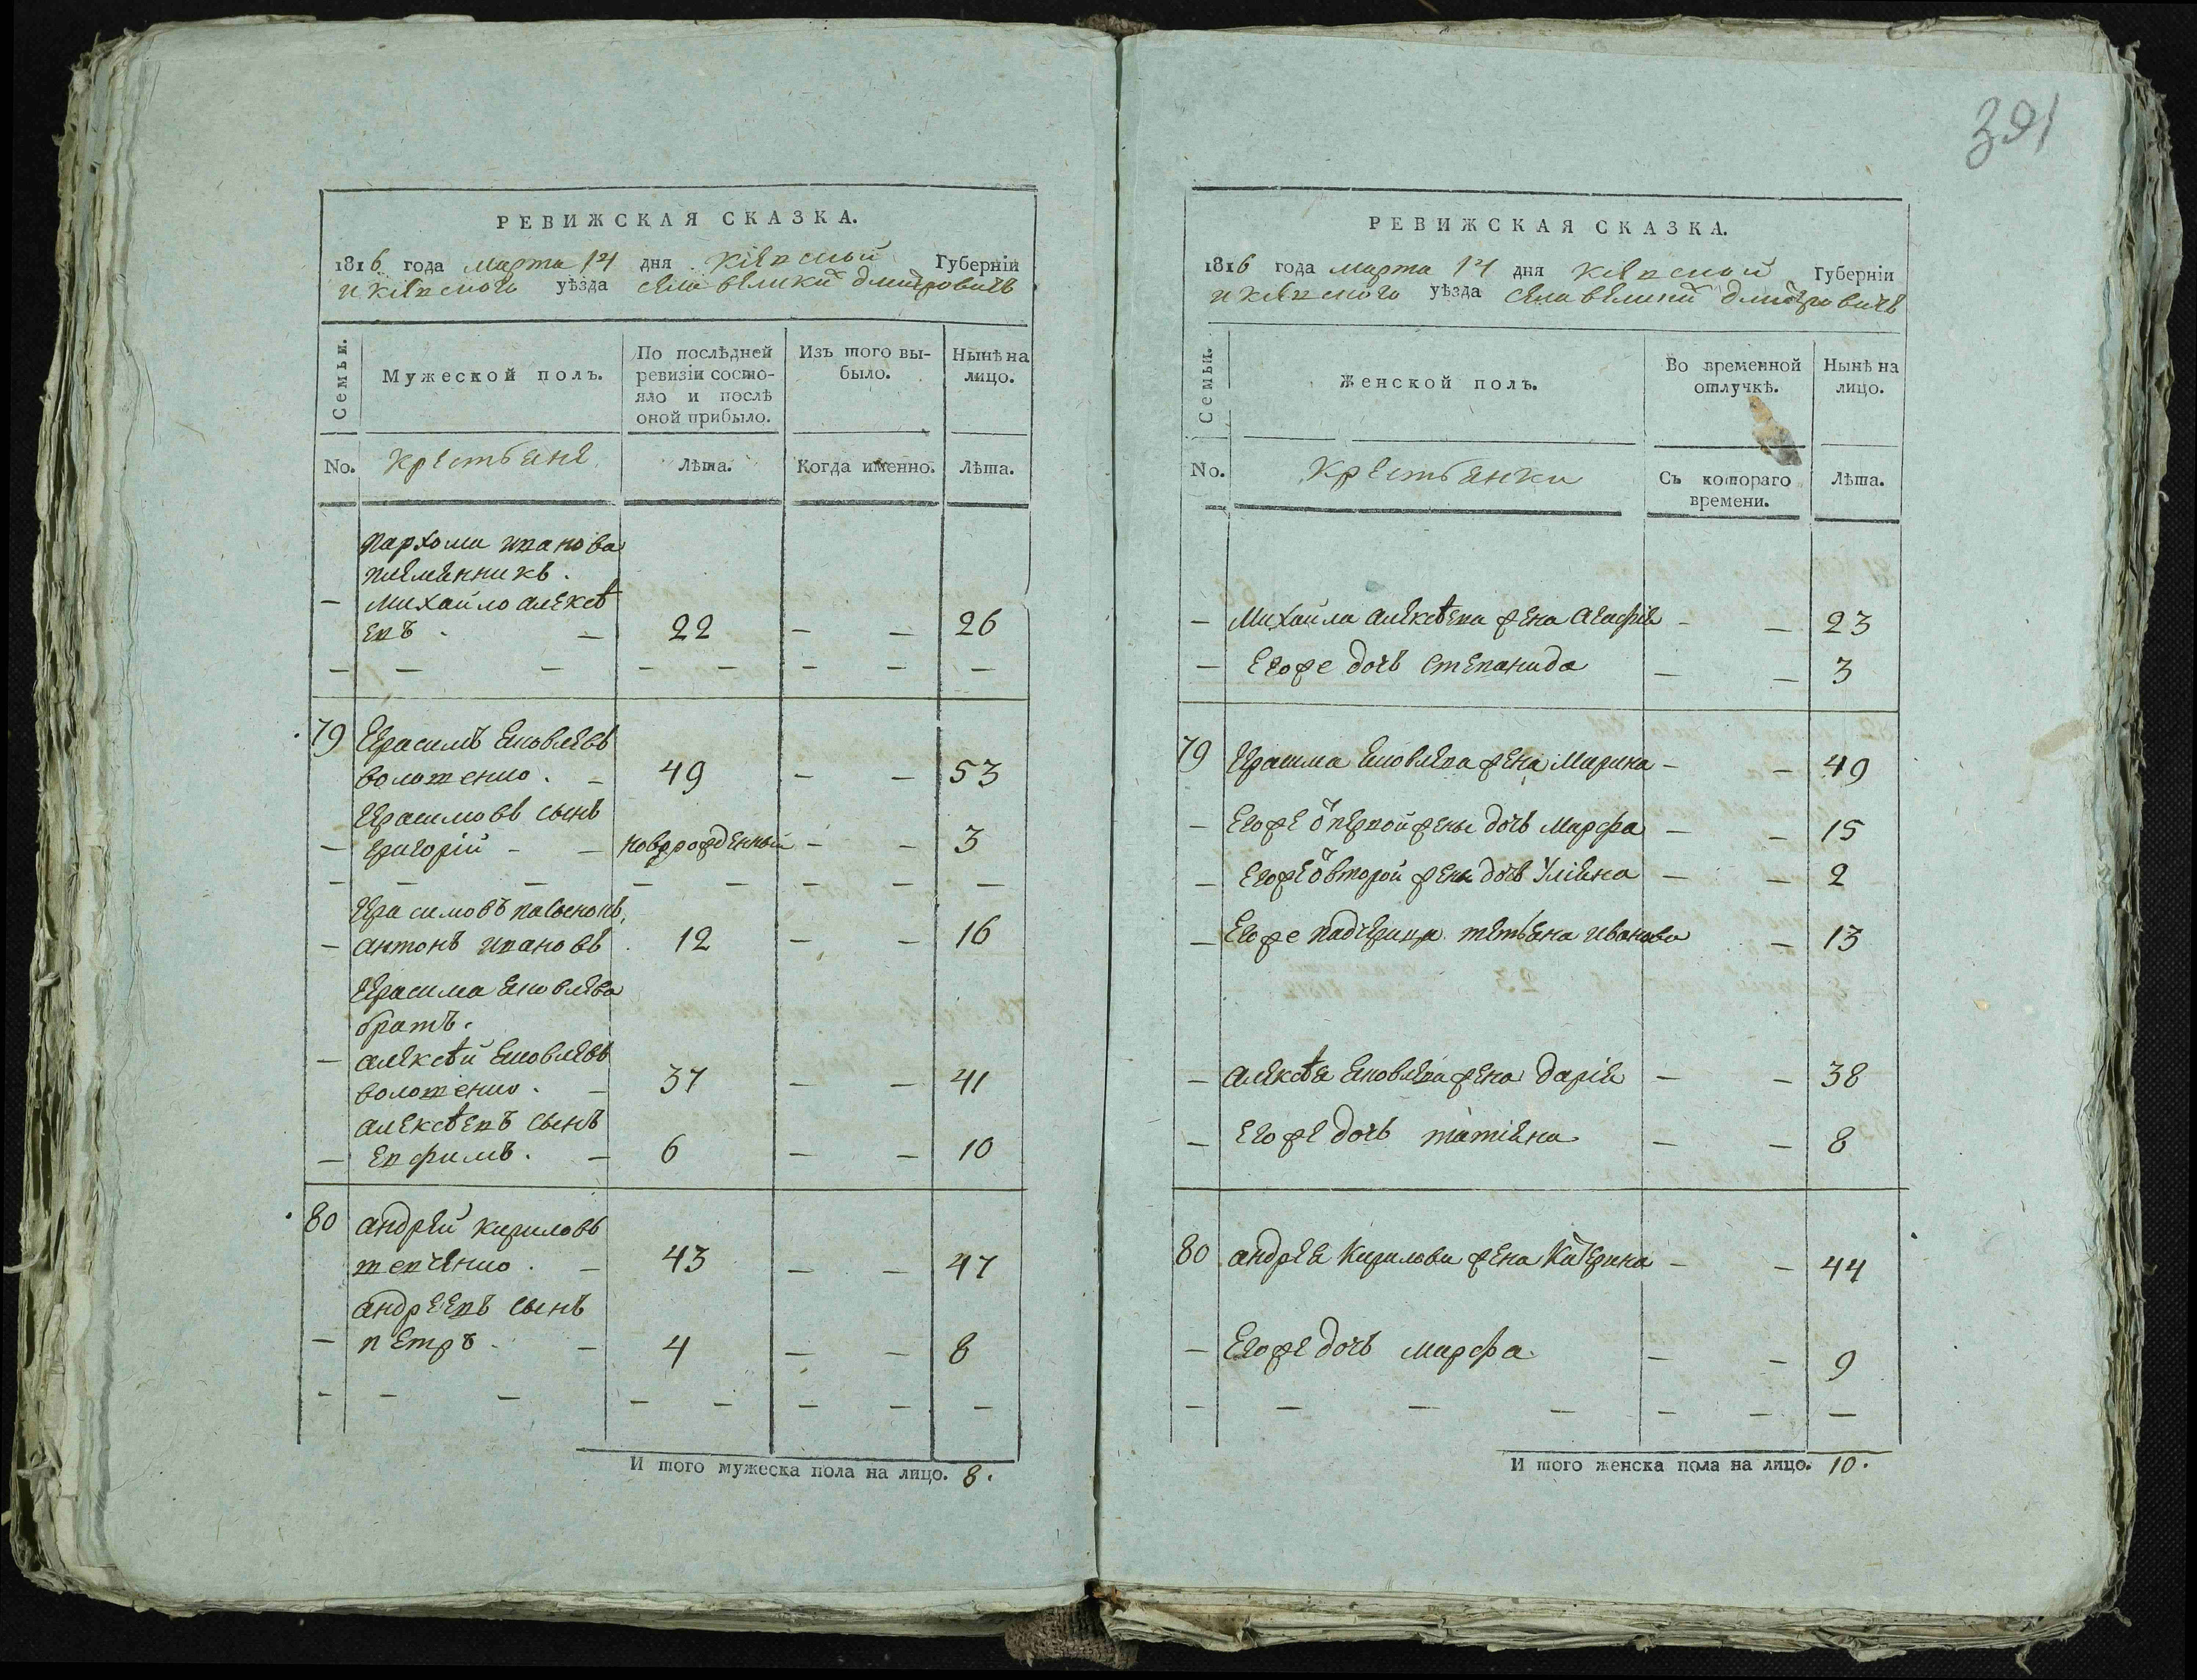 391
РЕВИЖСКАЯ СКАЗКА.
1816 года марта 14 дня Кіевской Губерніи
и Кіевского уѣзда села великй дмитровичъ
Семьи.
Мужеской полъ.
По послѣдней ревизіи состо-
яло и послѣ
оной прибыло.
Изъ того вы-
было.
Нынѣ на
лицо.
No. Крестьяне Лѣта. Когда именно. Лѣта.
Пархома иванова
племянникъ.
— Михайло алексѣ
евъ. — 22 — — 26
— — — — — — — —
79 Герасимъ Яковлевъ
волошенко. — 49 — — 53
Герасимовъ сынъ
— григорій — — новорожденный — — 3
— — — — — — — —
Герасимовъ пасынокъ,
— антонъ ивановъ. 12 — — 16
Герасима Яковлева
братъ.
— алексѣй Яковлевъ
волошенко. — 37 — — 41
алексѣевъ сынъ
— Евфимъ. — 6 — — 10
80 андрей кириловъ
шевченко. — 43 — — 47
андреевъ сынъ
— петръ. — 4 — — 8
— — — — — — — —
И того мужеска пола на лицо. 8.
РЕВИЖСКАЯ СКАЗКА.
1816 года марта 14 дня Кіевской Губерніи
и Кіевского уѣзда села великй дмитровичъ
Семьи.
Женской полъ.
Во временной
отлучкѣ.
Нынѣ на
лицо.
No. Крестьянки Съ котораго
времени. Лѣта.
— Михайла алексѣева жена агафія — — 23
— Егоже дочь степанида — — 3
79 Герасима Яковлева жена Марина — — 49
— Егоже ѿ первой жены дочь Марфа — — 15
— Егоже ѿ второй жены дочь Уліяна — — 2
— Егоже падчерица тетьяна иванова — 13
— алексѣя Яковлева жена дарія — — 38
— Егоже дочь татіяна — — 8
80 андрея Кирилова жена Катерина — — 44
— Егоже дочь марфа. — — 9
— — — — — — —
И того женска пола на лицо. 10.